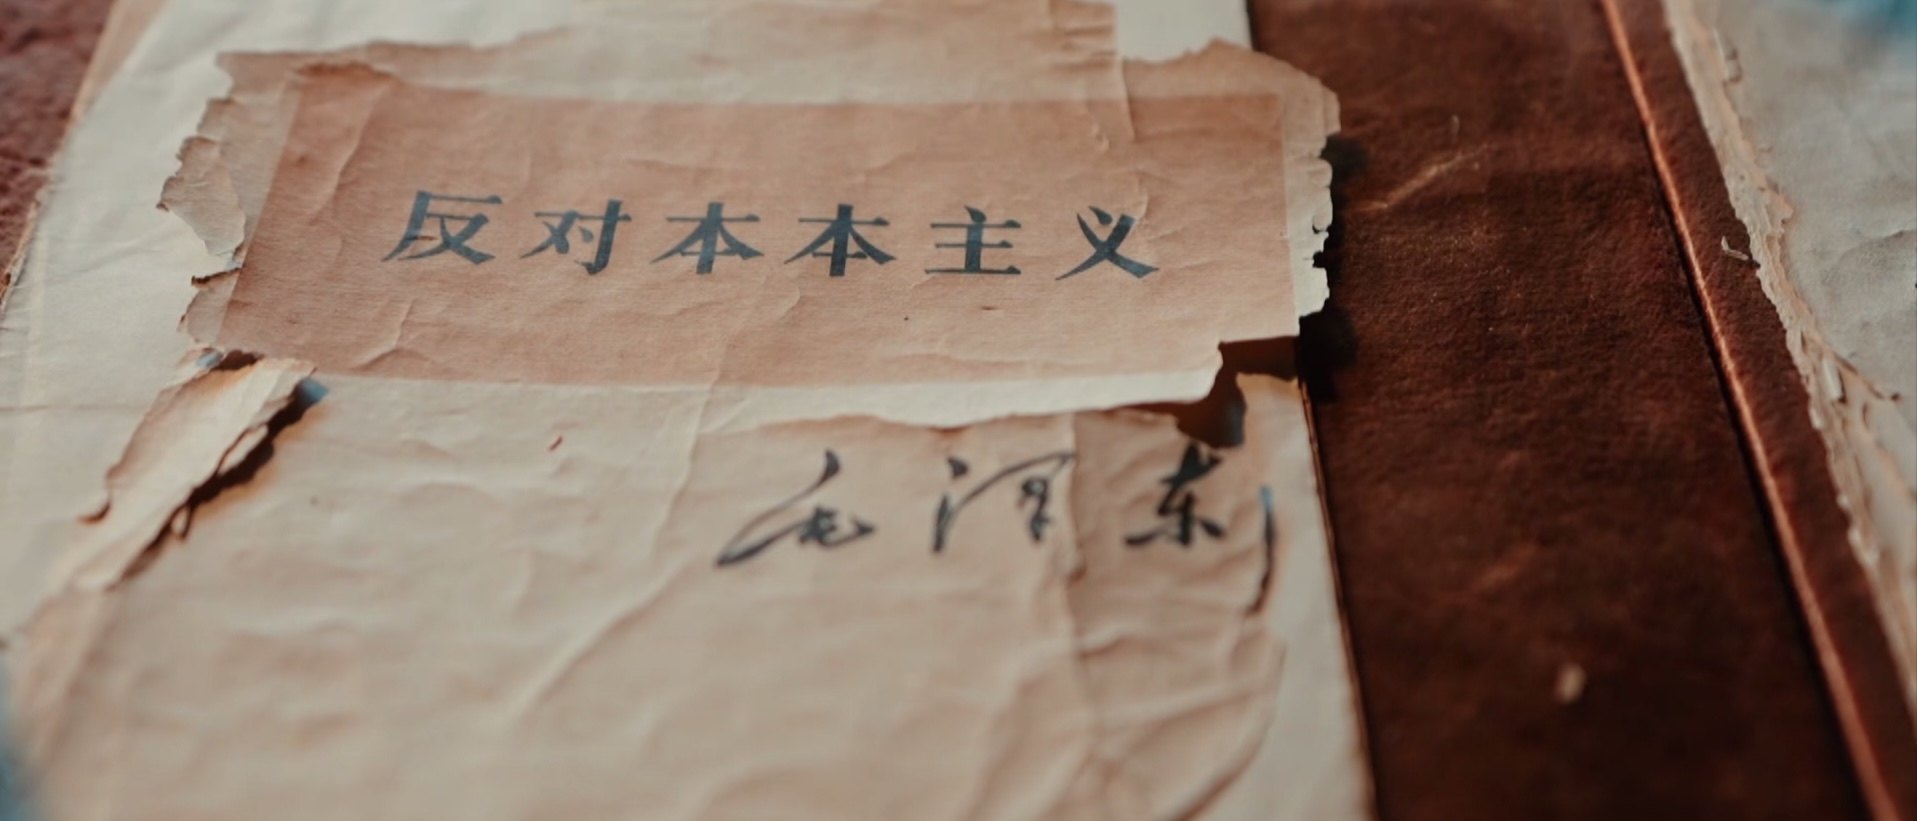 反对本本主义
毛泽东